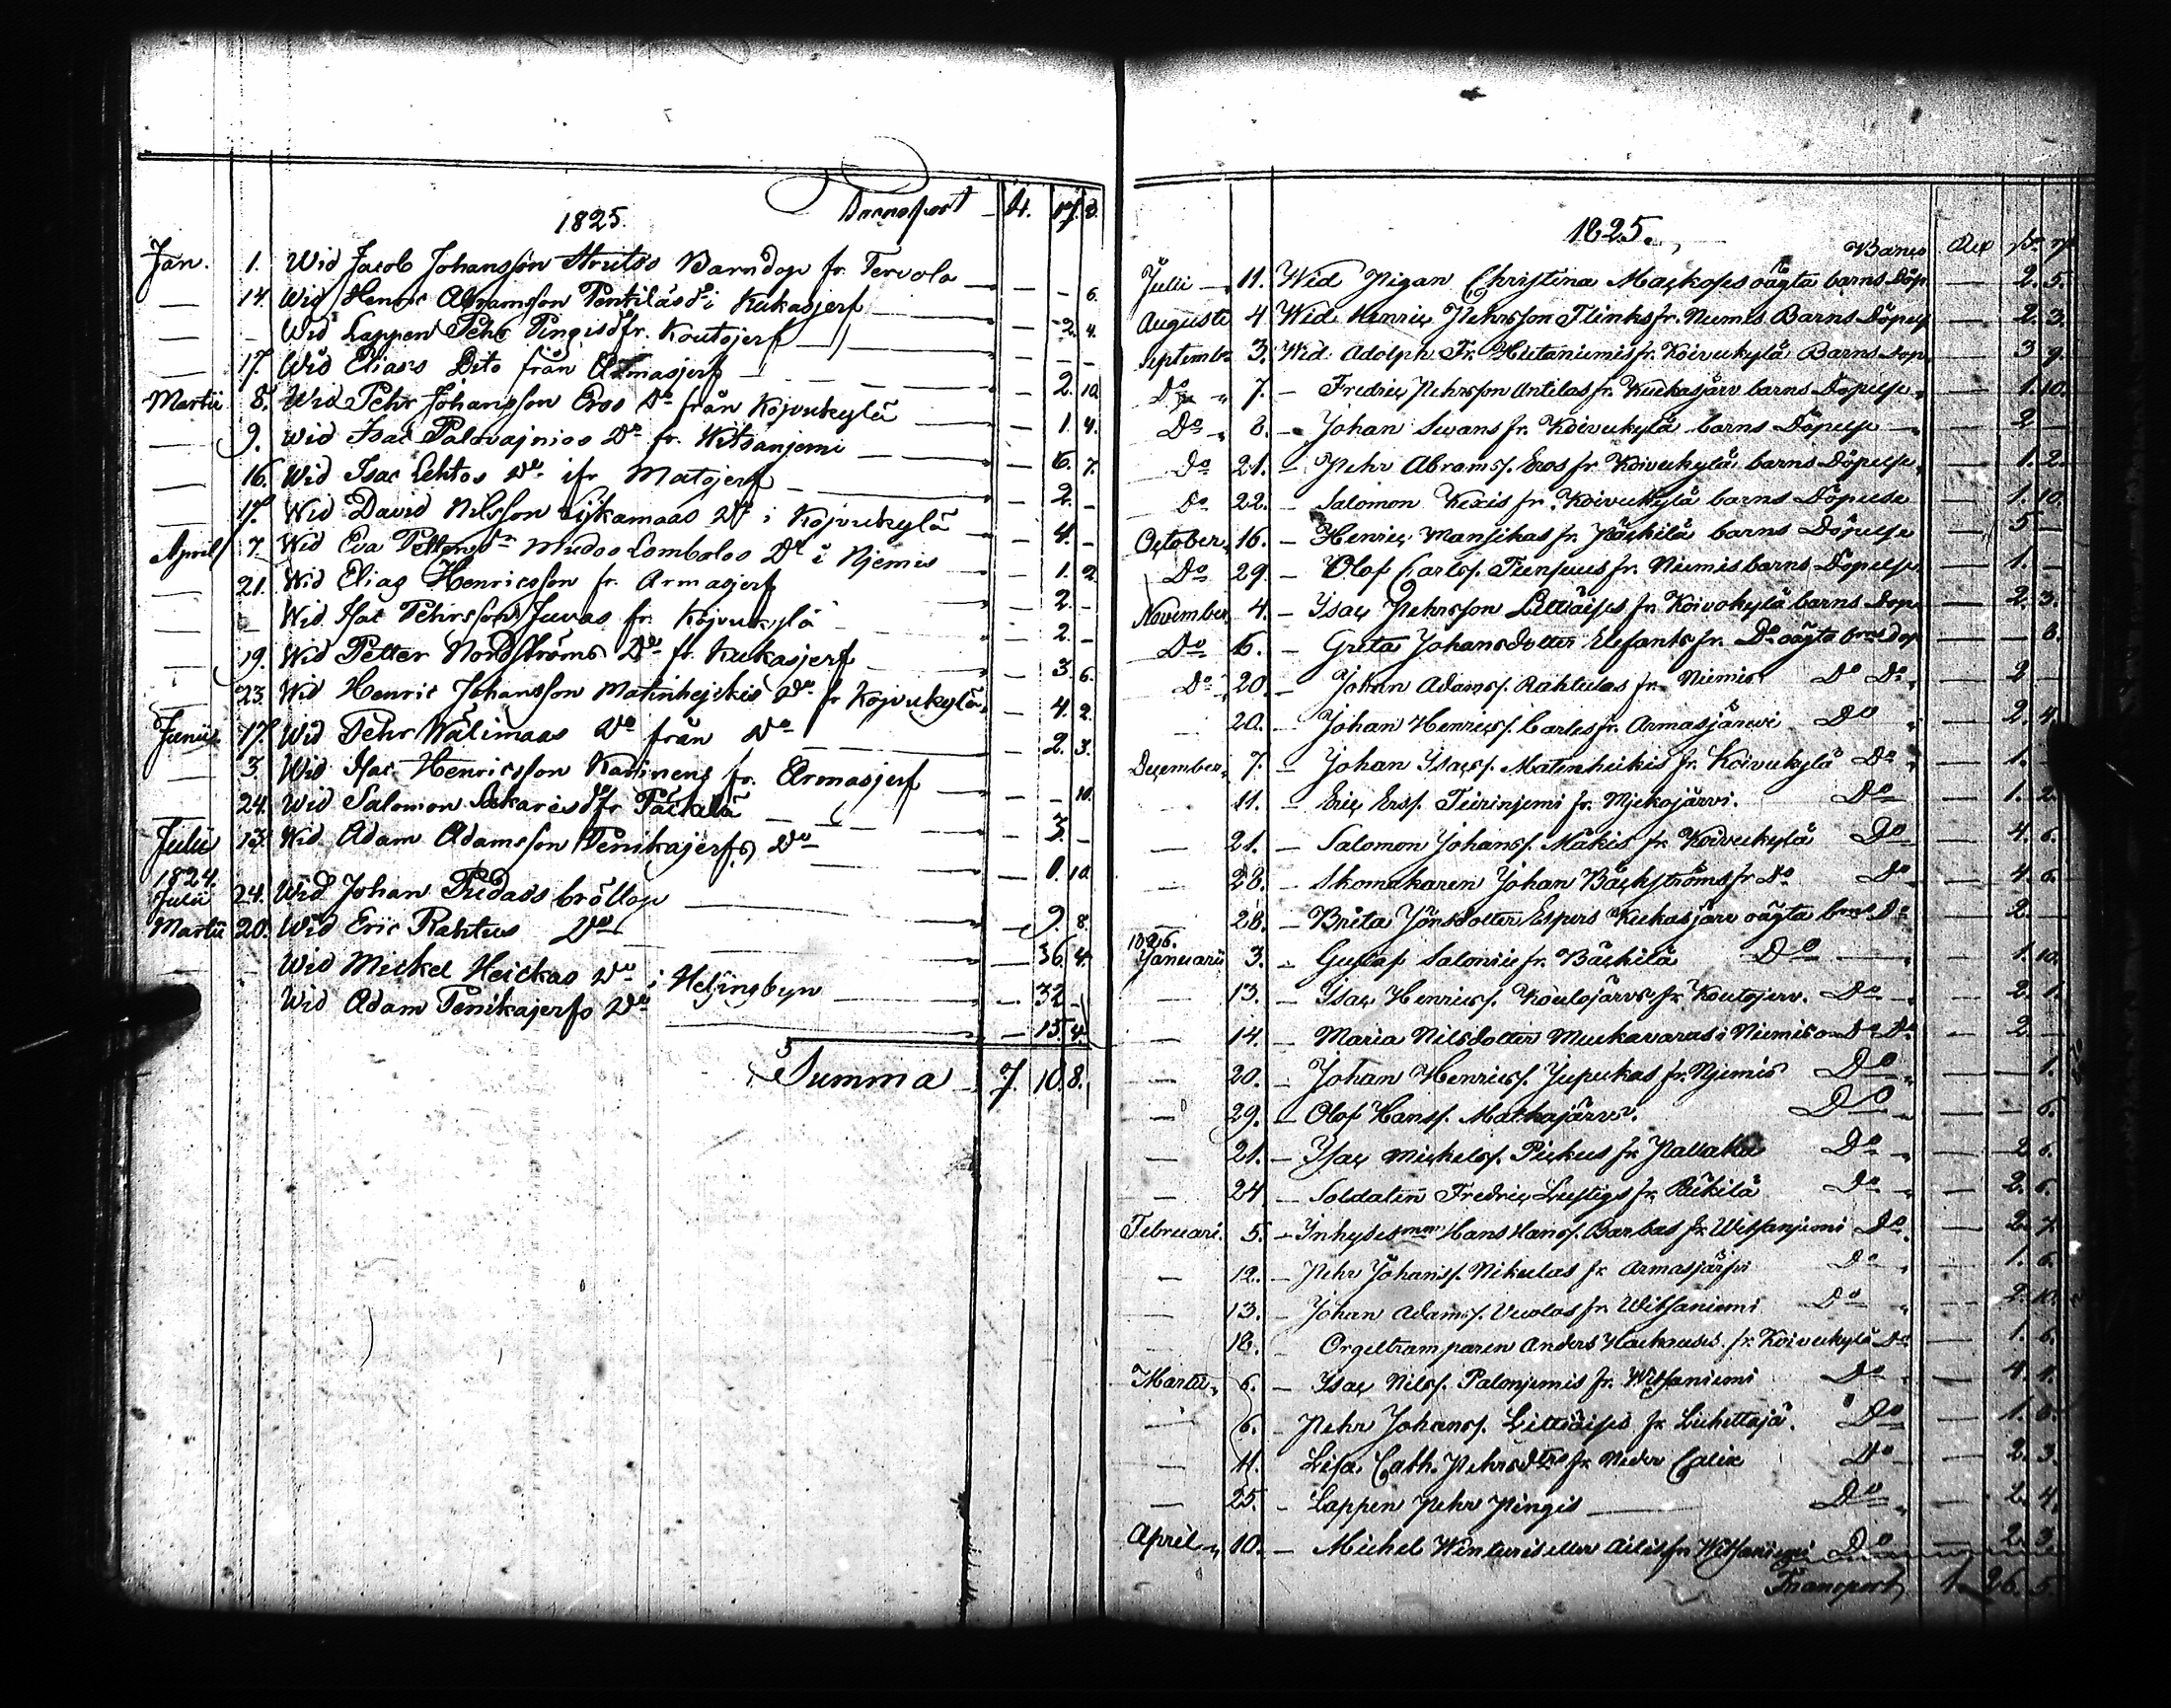 1825. Transport
Jan. 1. Wid Jacob Johansson Struts's Barndop fr. Tervola — — 6.
— 14. Wid Henric Abramsson Pentiläs do i Kukasjerf — 2. 4.
— — Wid Lappen Pehr Pingis do fr. Koutojerf — — —
— 17. Wid Elias's Dito från Armasjerf — 2. 10.
Martii 8. Wid Pehr Johansson Eros Do från Kojvukylä — 1. 4.
— 9. Wid Isac Palovajnios Do fr. Witsanjemi — 6. 7.
— 16. Wid Isac Lehtos Do ifr Matojerf — 2. —
— 17. Wid David Nilsson Do i Kojvukylä — 4. —
April 7. Wid Eva Mudos Lombolos Do i Njemis — 1. 2.
— 21. Wid Elias Henricsson fr. Armasjerf — 2. —
— — Wid Isac Pehrsson Juvas fr. Kojvukylä — 2. —
— 19. Wid Petter Nordströms Do fr. Kukasjerf — 3. 6.
— 23. Wid Henric Johansson Matinhejckis Do fr Kojvukylä — 4. 2.
Junii 17. Wid Pehr Wälimaas Do från Do — 2. 3.
— 3. Wid Isac Henricsson Karinens fr. Armasjerf — — 10.
— 24. Wid Salomon Sakaris do fr Päckilä — 3. —
Julii 13. Wid Adam Adamsson Penikajerfs Do — 1. 10.
1824.
Julii 24. Wid Johan Fredass bröllop — 9. 8.
Martii 20. Wid Eric Rahtus Do — 36. 4.
— Wid Mickel Heickas Do i Helsingbyn — 32 —
Wid Adam Penikajerfs Do — 15. 4.
Summa 7. 10. 8.
1825.
Banco
Julii — 11. Wid Pigan Christina Mackoses oägta barns Döp. — 2. 5.
Augusti 4 Wid Henric Pehrsson Flinks fr. Niemis Barns Döpels — 2. 3.
Septembr 3. Wid Adolph Fr. Hietaniemis fr. Koivukylä Barns Dop — 3 9.
Do 7. — Fredric Pehrsson Antilas fr. Kuckasjärv barns Döpelse — 1. 10.
Do 8. — Johan Swans fr. Koivukylä barns Döpelse — 2 —
Do 21. — Pehr Abrams. Eros fr. Koivukylä barns Döpelse — 1. 2.
Do 22. — Salomon Kexis fr. Koivukylä barns Döpelse — 1. 10.
October 16. — Henric Mansikas fr. Päckilä barns Döpelse — 5 —
Do 29. — Olof Carls. fr. Niemis barns Döpelse — 1. —
November 4. — Isac Pehrsson Littiäises fr. Koivokylä barns Dop — 2. 3.
Do 6. — Greta Johansdotter Elefants fr. Do oägta brns dop — — 8.
Do 20. — Johan Adams. Rahtulas fr. Niemis Do Do — 2 —
20. — Johan Henrics. Carles fr. Armasjärwi Do — 2. 4.
December 7. — Johan Isacs. Matinheikis fr. Koivukylä Do — 1.
11. — Eric Ers. Teirinjemi fr. Mjekojärvi. Do — 1. 2.
— 21. — Salomon Johans. Mäkis fr. Koivukylä Do — 4. 6.
— 28. — Skomakaren Johan Bäckströms fr Do Do — 4. 6.
28. — Brita Jönsdotter Espers Kuckasjärv oägta brns Do — 2. —
1826.
Januarii 3. — Gustaf Salonis fr. Bäckilä Do — 1. 10.
— 13. — Isac Henrics. Koutojärvs fr Koutojerv. Do — 2. 1.
— 14. — Maria Nilsdotter Muckavaras i Niemis Do Do — 2 —
— 20. — Johan Henrics. Jupukas fr. Njemis Do — — 1.
— 29. — Olof Hans. Matkajärvs. Do — — 6.
— 21. — Isac Mickels. Pickus fr. Do — 2 6.
— 24 — Soldaten Fredric Lustigs fr. Do — 2. 6.
Februari. 5. — Inhyses Hans Hans. Barbas fr. Witsanjemi Do — 2. 7.
— 12. — Pehr Johans. Nikulas fr Armasjärfvi Do — 1. 6.
— 13. — Johan Adams. fr. Witsaniemi Do — 2. 10.
18. — Orgeltramparen Anders fr. Koivukylä Do — 1. 6.
Martii 6. — Isac Nils. Palonjemis fr. Witsaniemi Do — 4. 1.
— 6. — Pehr Johans. Littiäises fr Do — 1. 6.
— 11. Lisa Cath. Pehrsdtrs fr Neder Calix Do — 2. 3.
— 25. — Lappen Pehr Pingis — Do — 2. 4.
April 10. — Michel Do — 2. 3.
Transport 1. 26. 5.